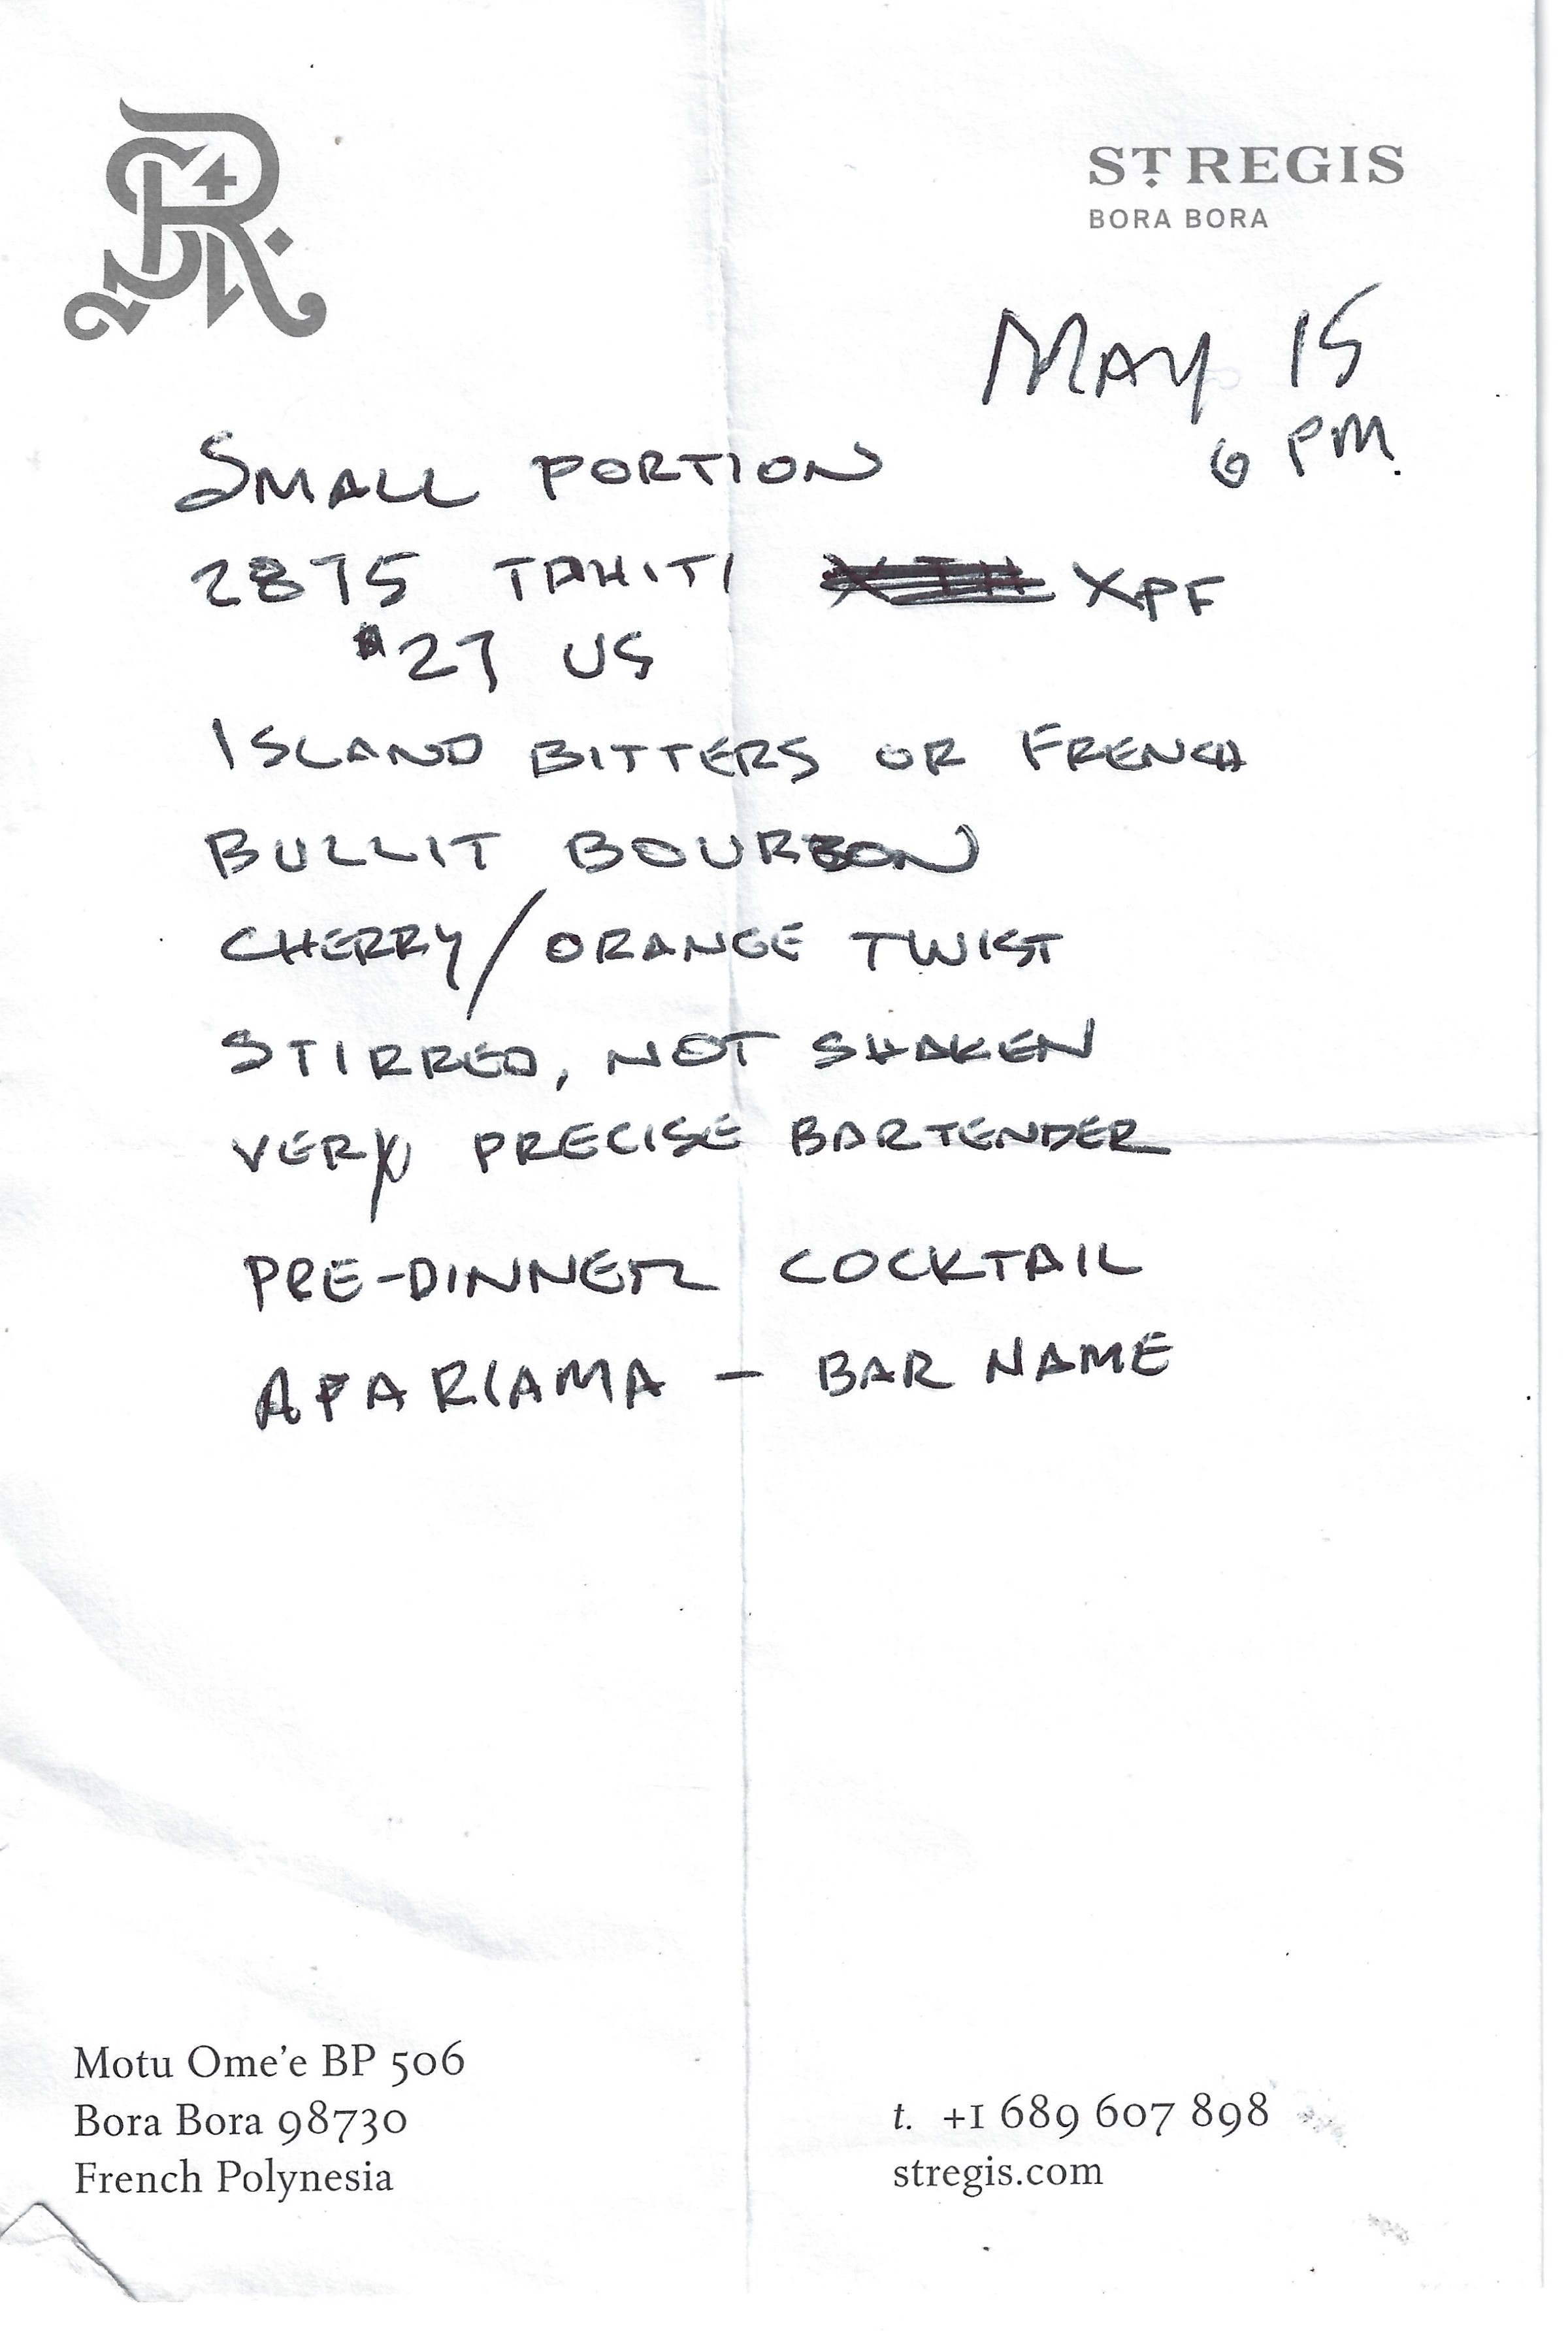 ST REGIS
BORA BORA
MAY 15
6 PM.
SMALL PORTION
2875 TAHITI XPF
$27 US
ISLAND BITTERS OR FRENCH
BULLIT BOURBON
CHERRY/ORANGE TWIST
STIRRED, NOT SHAKEN
VERY PRECISE BARTENDER
PRE-DINNER COCKTAIL
APARIAMA - BAR NAME
Motu Ome'e BP 506
Bora Bora 98730
French Polynesia
t. +1 689 607 898
stregis.com